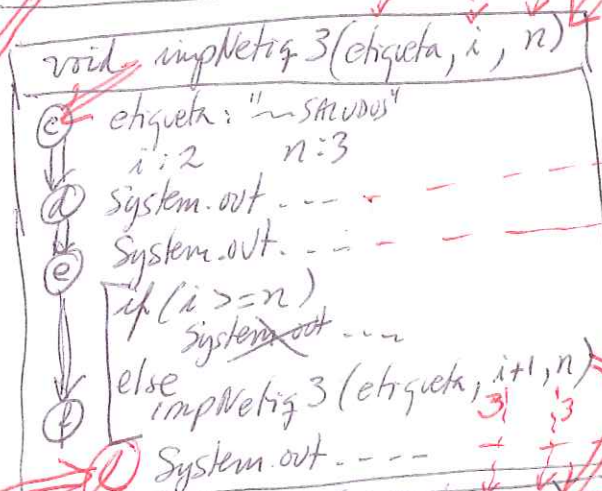 void impNetiq3(etiqueta, i, n)
c etiqueta: "~SALUDOS"
i:2 n:3
d System.out ---
System.out. ---
e
if (i >= n)
System.out ---
else
impNetiq3(etiqueta, i+1, n)
f 3 3
l System.out. ----